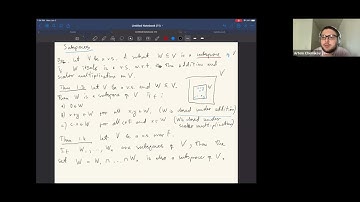 Subspaces
Let V be a v.s. A subset W ⊆ V is a subspace of V
W itself is a v.s. w.r.t. the addition and
scalar multiplication on V.
Thm 1.3. Let V be a v.s. and W ⊆ V.
Then W is a subspace of V iff:
1) 0 ∈ W
2) x+y ∈ W for all x,y ∈ W. (W is closed under addition)
3) c·x ∈ W for all c ∈ F and x ∈ W (W closed under
scalar multiplication)
Thm 1.4. Let V be a v.s. over F.
If W₁, ..., Wₙ are subspaces of V, then the
set W = W₁ ∩ ... ∩ Wₙ is also a subspace of V.